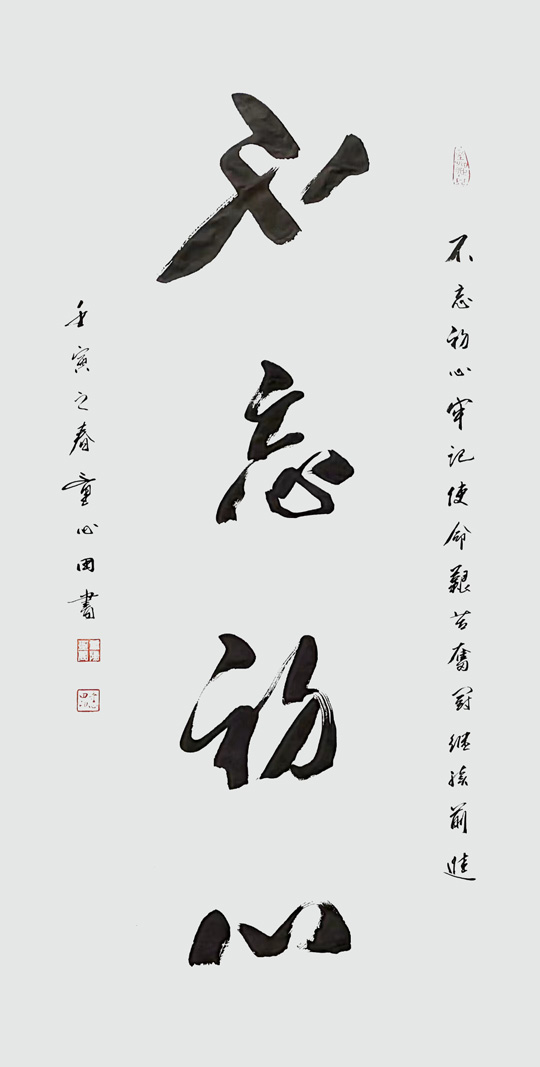 不忘初心牢記使命艱苦奮鬥繼續前進
不忘初心
壬寅之春童心田書